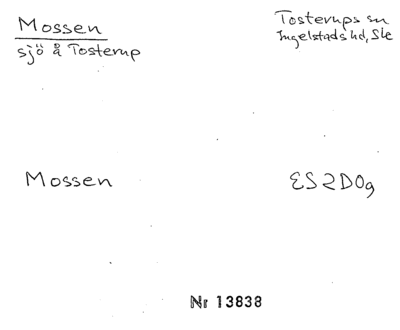 Mossen
sjö å Tosterup
Tosterups sn
Ingelstads hd, Skå
Mossen
ES2D0g
Nr 13838